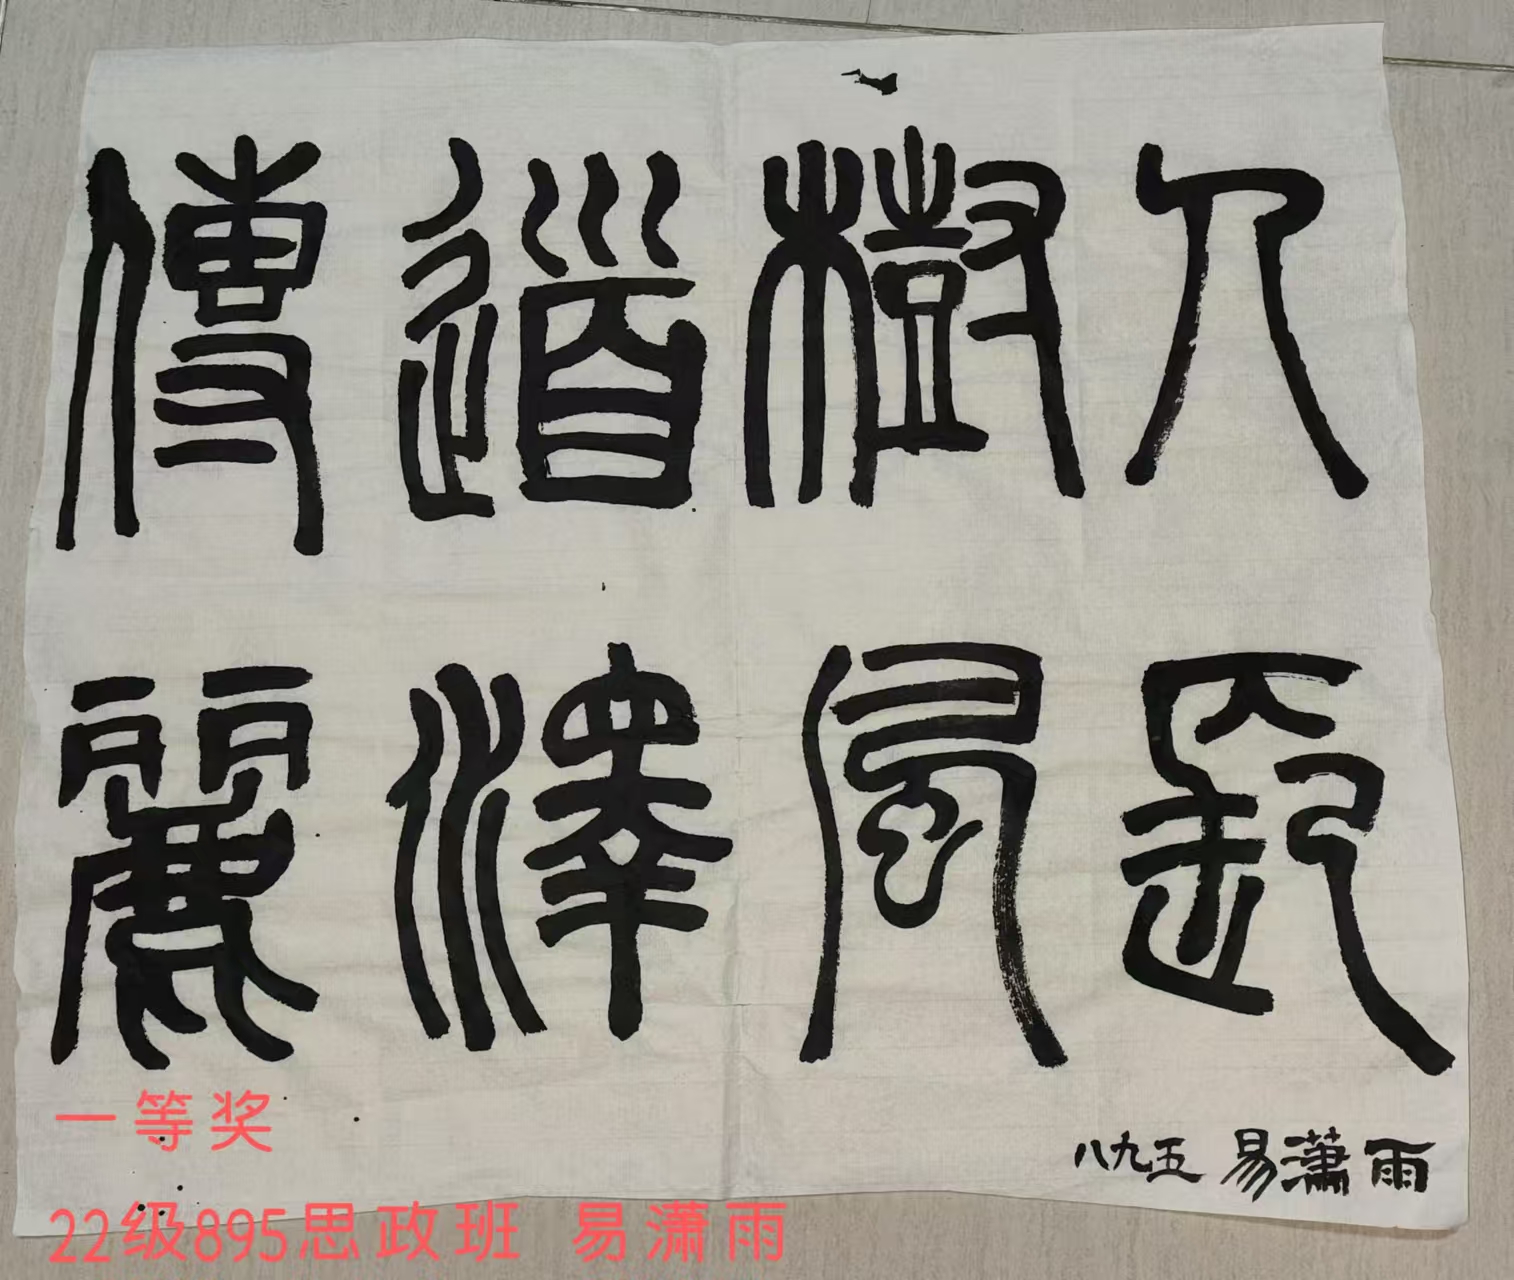 傳道樹人
麗澤風長
八九五 易瀟雨
一等奖
22级895思政班 易潇雨